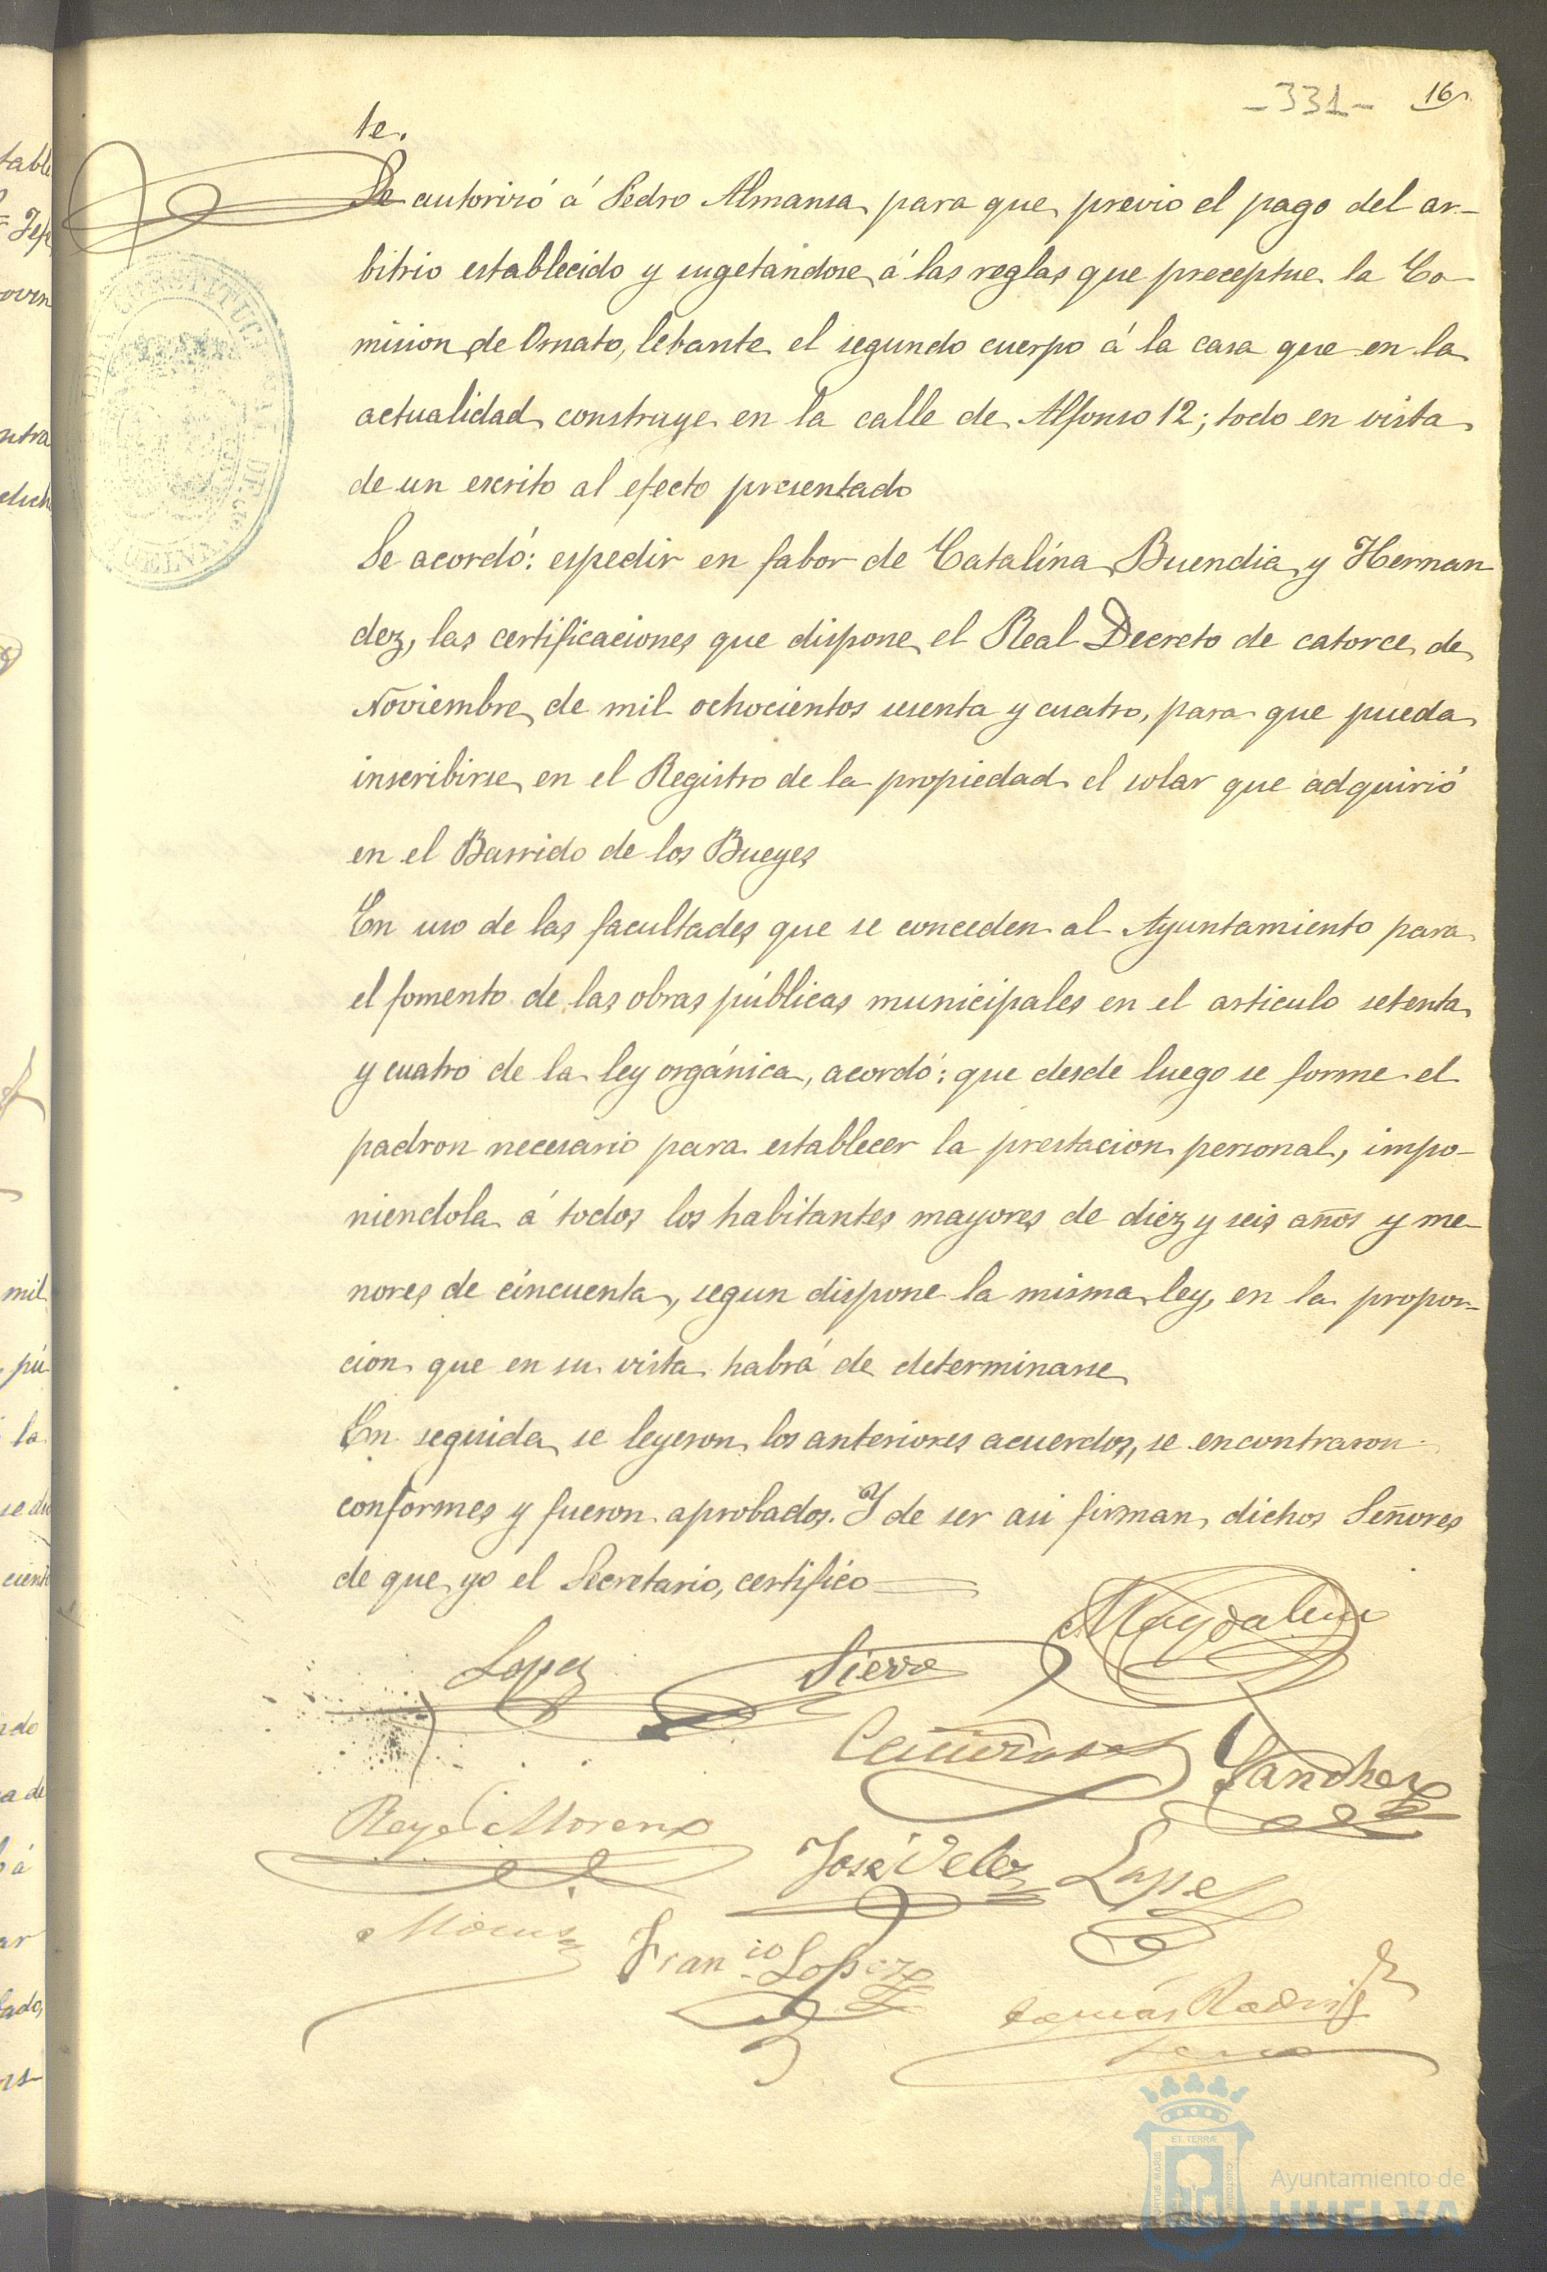 -331- 16
te.
Se autorizó á Pedro Almansa para que previo el pago del ar-
bitrio establecido y sugetandose á las reglas que preceptue la Co
mision de Ornato, lebante el segundo cuerpo á la casa que en la
actualidad construye en la calle de Alfonso 12; todo en vista
de un escrito al efecto presentado
Se acordó: espedir en fabor de Catalina Buendia y Hernan
dez, las certificaciones que dispone el Real Decreto de catorce de
Noviembre de mil ochocientos sesenta y cuatro, para que pueda
inscribirse en el Registro de la propiedad el solar que adquirió
en el Barrido de los Bueyes
En uso de las facultades que se conceden al Ayuntamiento para
el fomento de las obras públicas municipales en el articulo setenta
y cuatro de la ley orgánica, acordó: que desde luego se forme el
padron necesario para establecer la prestacion personal, impo-
niendola á todos los habitantes mayores de diez y seis años y me-
nores de cincuenta, segun dispone la misma ley, en la propor-
cion que en su vista habrá de determinarse
En seguida se leyeron los anteriores acuerdos, se encontraron
conformes y fueron aprobados. Y de ser asi firman dichos Señores
de que yo el Secretario, certifico
Lopez Sierra Magdalena
Sanchez
Reyes Moreno
José Velez Lopez
Fran.co Lopez
Tomás Rodrig
Ayuntamiento de
HUELVA